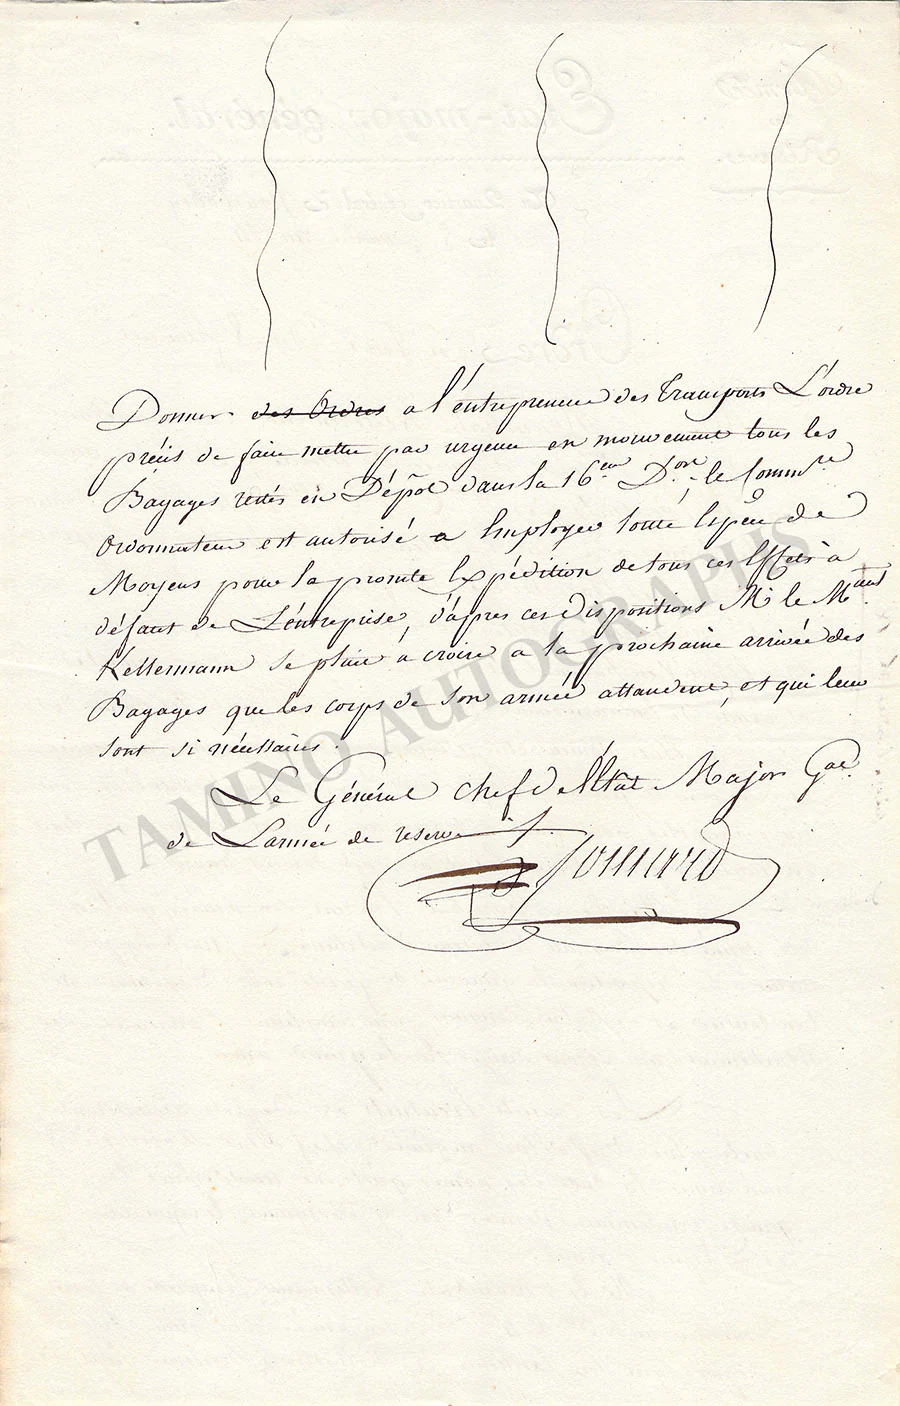 Donner des Ordres a l'entrepreneur des Transports L'ordre
précis de faire mettre par urgence en mouvement tous les
Bagages restés en Dépôt dans la 16.eme D.on, le Comm.re
Ordonnateur est autorisé a Employer toute Espéce de
Moyens pour la promte Expédition de tous ces Effets à
défaut de L'entreprise, d'après ces Dispositions M.r le M.aal
Kellermann se plait à croire a la prochaine arrivée des
Bagages que les corps de son armée attandent, et qui leur
sont si nécessaires.
Le Général chef de l'Etat Major G.al
de L'armée de reserve
TAMINO AUTOGRAPHS